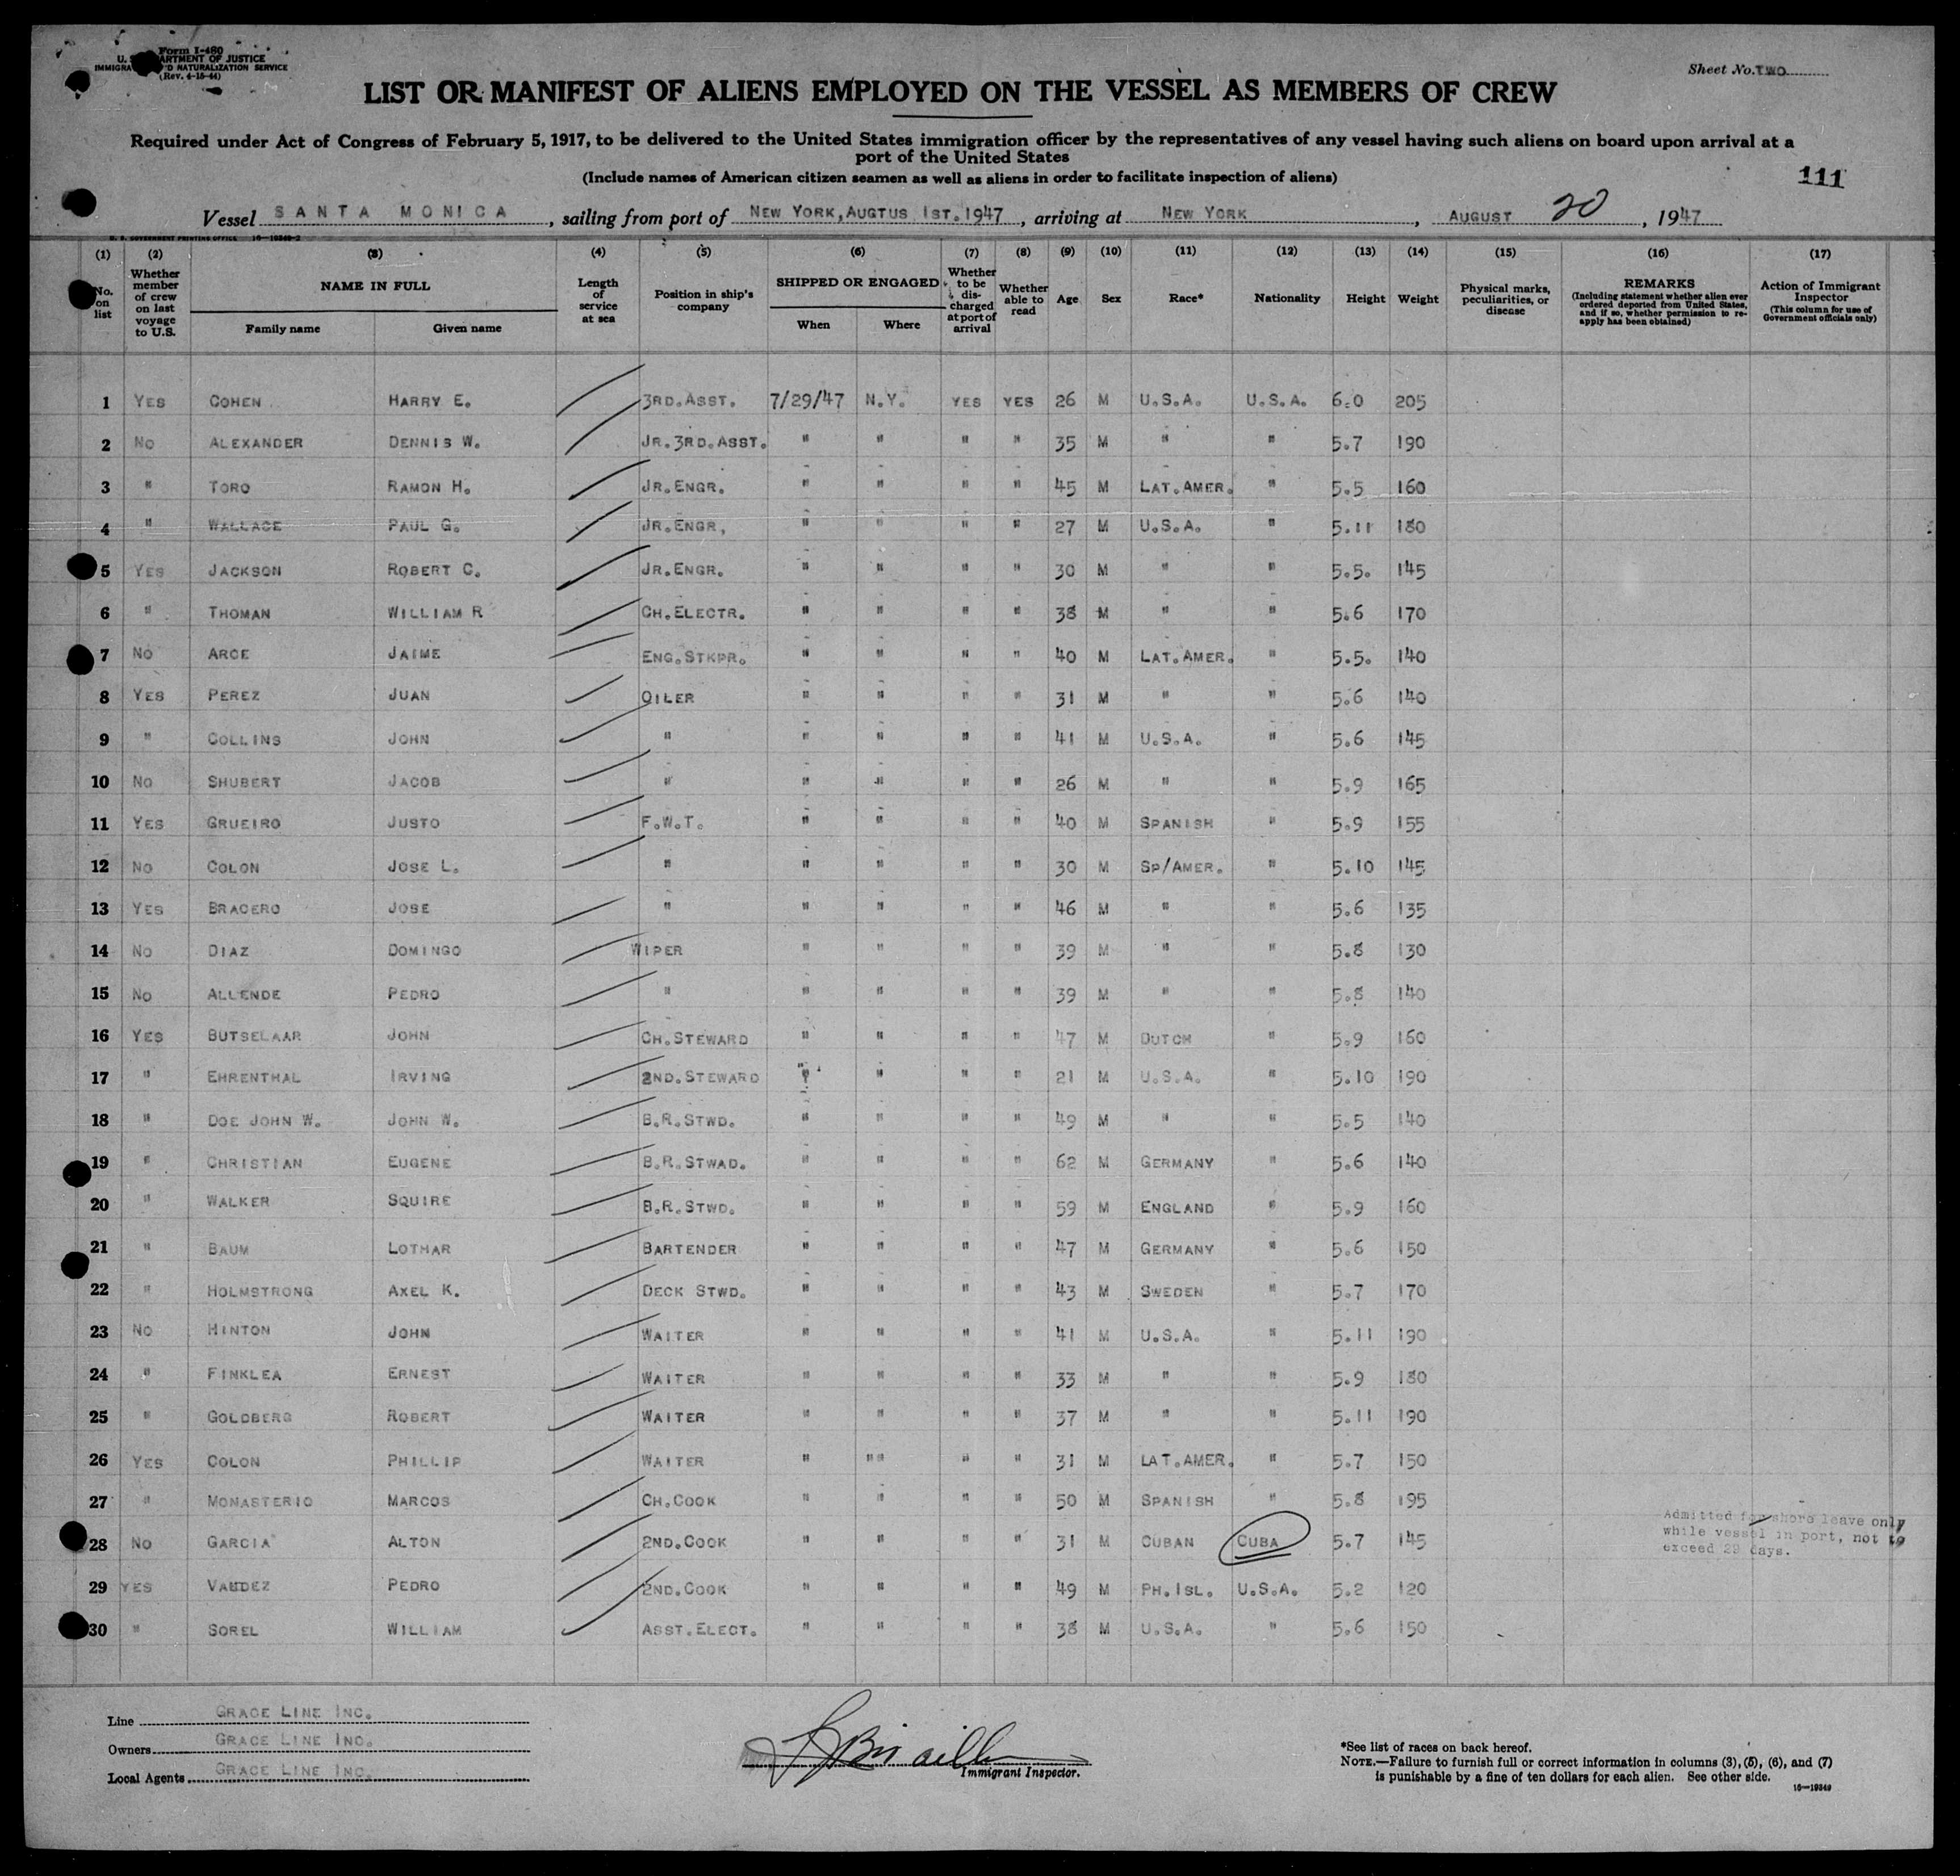 Form I-480
U. S. DEPARTMENT OF JUSTICE
IMMIGRATION AND NATURALIZATION SERVICE
(Rev. 4-15-44)
Sheet No. TWO
LIST OR MANIFEST OF ALIENS EMPLOYED ON THE VESSEL AS MEMBERS OF CREW
Required under Act of Congress of February 5, 1917, to be delivered to the United States immigration officer by the representatives of any vessel having such aliens on board upon arrival at a
port of the United States
(Include names of American citizen seamen as well as aliens in order to facilitate inspection of aliens)
111
Vessel SANTA MONICA, sailing from port of NEW YORK, AUGTUS 1ST. 1947, arriving at NEW YORK, AUGUST 20, 1947
U. S. GOVERNMENT PRINTING OFFICE 16—19349-2
(1) (2) (3) (4) (5) (6) (7) (8) (9) (10) (11) (12) (13) (14) (15) (16) (17)
No. on list
Whether member of crew on last voyage to U.S.
NAME IN FULL
Family name
Given name
Length of service at sea
Position in ship's company
SHIPPED OR ENGAGED
When
Where
Whether to be discharged at port of arrival
Whether able to read
Age
Sex
Race*
Nationality
Height
Weight
Physical marks, peculiarities, or disease
REMARKS
(Including statement whether alien ever ordered deported from United States, and if so, whether permission to reapply has been obtained)
Action of Immigrant Inspector
(This column for use of Government officials only)
1 YES COHEN HARRY E. 3RD.ASST. 7/29/47 N.Y. YES YES 26 M U.S.A. U.S.A. 6.0 205
2 NO ALEXANDER DENNIS W. JR.3RD.ASST. " " " " 35 M " " 5.7 190
3 " TORO RAMON H. JR.ENGR. " " " " 45 M LAT.AMER. " 5.5 160
4 " WALLACE PAUL G. JR.ENGR. " " " " 27 M U.S.A. " 5.11 180
5 YES JACKSON ROBERT C. JR.ENGR. " " " " 30 M " " 5.5. 145
6 " THOMAN WILLIAM R CH.ELECTR. " " " " 38 M " " 5.6 170
7 NO ARCE JAIME ENG.STKPR. " " " " 40 M LAT.AMER. " 5.5. 140
8 YES PEREZ JUAN OILER " " " " 31 M " " 5.6 140
9 " COLLINS JOHN " " " " " 41 M U.S.A. " 5.6 145
10 NO SHUBERT JACOB " " " " " 26 M " " 5.9 165
11 YES GRUEIRO JUSTO F.W.T. " " " " 40 M SPANISH " 5.9 155
12 NO COLON JOSE L. " " " " " 30 M SP/AMER. " 5.10 145
13 YES BRACERO JOSE " " " " " 46 M " " 5.6 135
14 NO DIAZ DOMINGO WIPER " " " " 39 M " " 5.8 130
15 NO ALLENDE PEDRO " " " " " 39 M " " 5.8 140
16 YES BUTSELAAR JOHN CH.STEWARD " " " " 47 M DUTCH " 5.9 160
17 " EHRENTHAL IRVING 2ND.STEWARD " " " " 21 M U.S.A. " 5.10 190
18 " DOE JOHN W. JOHN W. B.R.STWD. " " " " 49 M " " 5.5 140
19 " CHRISTIAN EUGENE B.R.STWAD. " " " " 62 M GERMANY " 5.6 140
20 " WALKER SQUIRE B.R.STWD. " " " " 59 M ENGLAND " 5.9 160
21 " BAUM LOTHAR BARTENDER " " " " 47 M GERMANY " 5.6 150
22 " HOLMSTRONG AXEL K. DECK STWD. " " " " 43 M SWEDEN " 5.7 170
23 NO HINTON JOHN WAITER " " " " 41 M U.S.A. " 5.11 190
24 " FINKLEA ERNEST WAITER " " " " 33 M " " 5.9 180
25 " GOLDBERG ROBERT WAITER " " " " 37 M " " 5.11 190
26 YES COLON PHILLIP WAITER " "" " " 31 M LAT.AMER. " 5.7 150
27 " MONASTERIO MARCOS CH.COOK " " " " 50 M SPANISH " 5.8 195
28 NO GARCIA ALTON 2ND.COOK " " " " 31 M CUBAN CUBA 5.7 145
Admitted for shore leave only
while vessel in port, not to
exceed 29 days.
29 YES VALDEZ PEDRO 2ND.COOK " " " " 49 M PH.ISL. U.S.A. 5.2 120
30 " SOREL WILLIAM ASST.ELECT. " " " " 38 M U.S.A. " 5.6 150
Line GRACE LINE INC.
Owners GRACE LINE INC.
Local Agents GRACE LINE INC.
Immigrant Inspector.
*See list of races on back hereof.
NOTE.—Failure to furnish full or correct information in columns (3), (5), (6), and (7)
is punishable by a fine of ten dollars for each alien. See other side.
16—19349